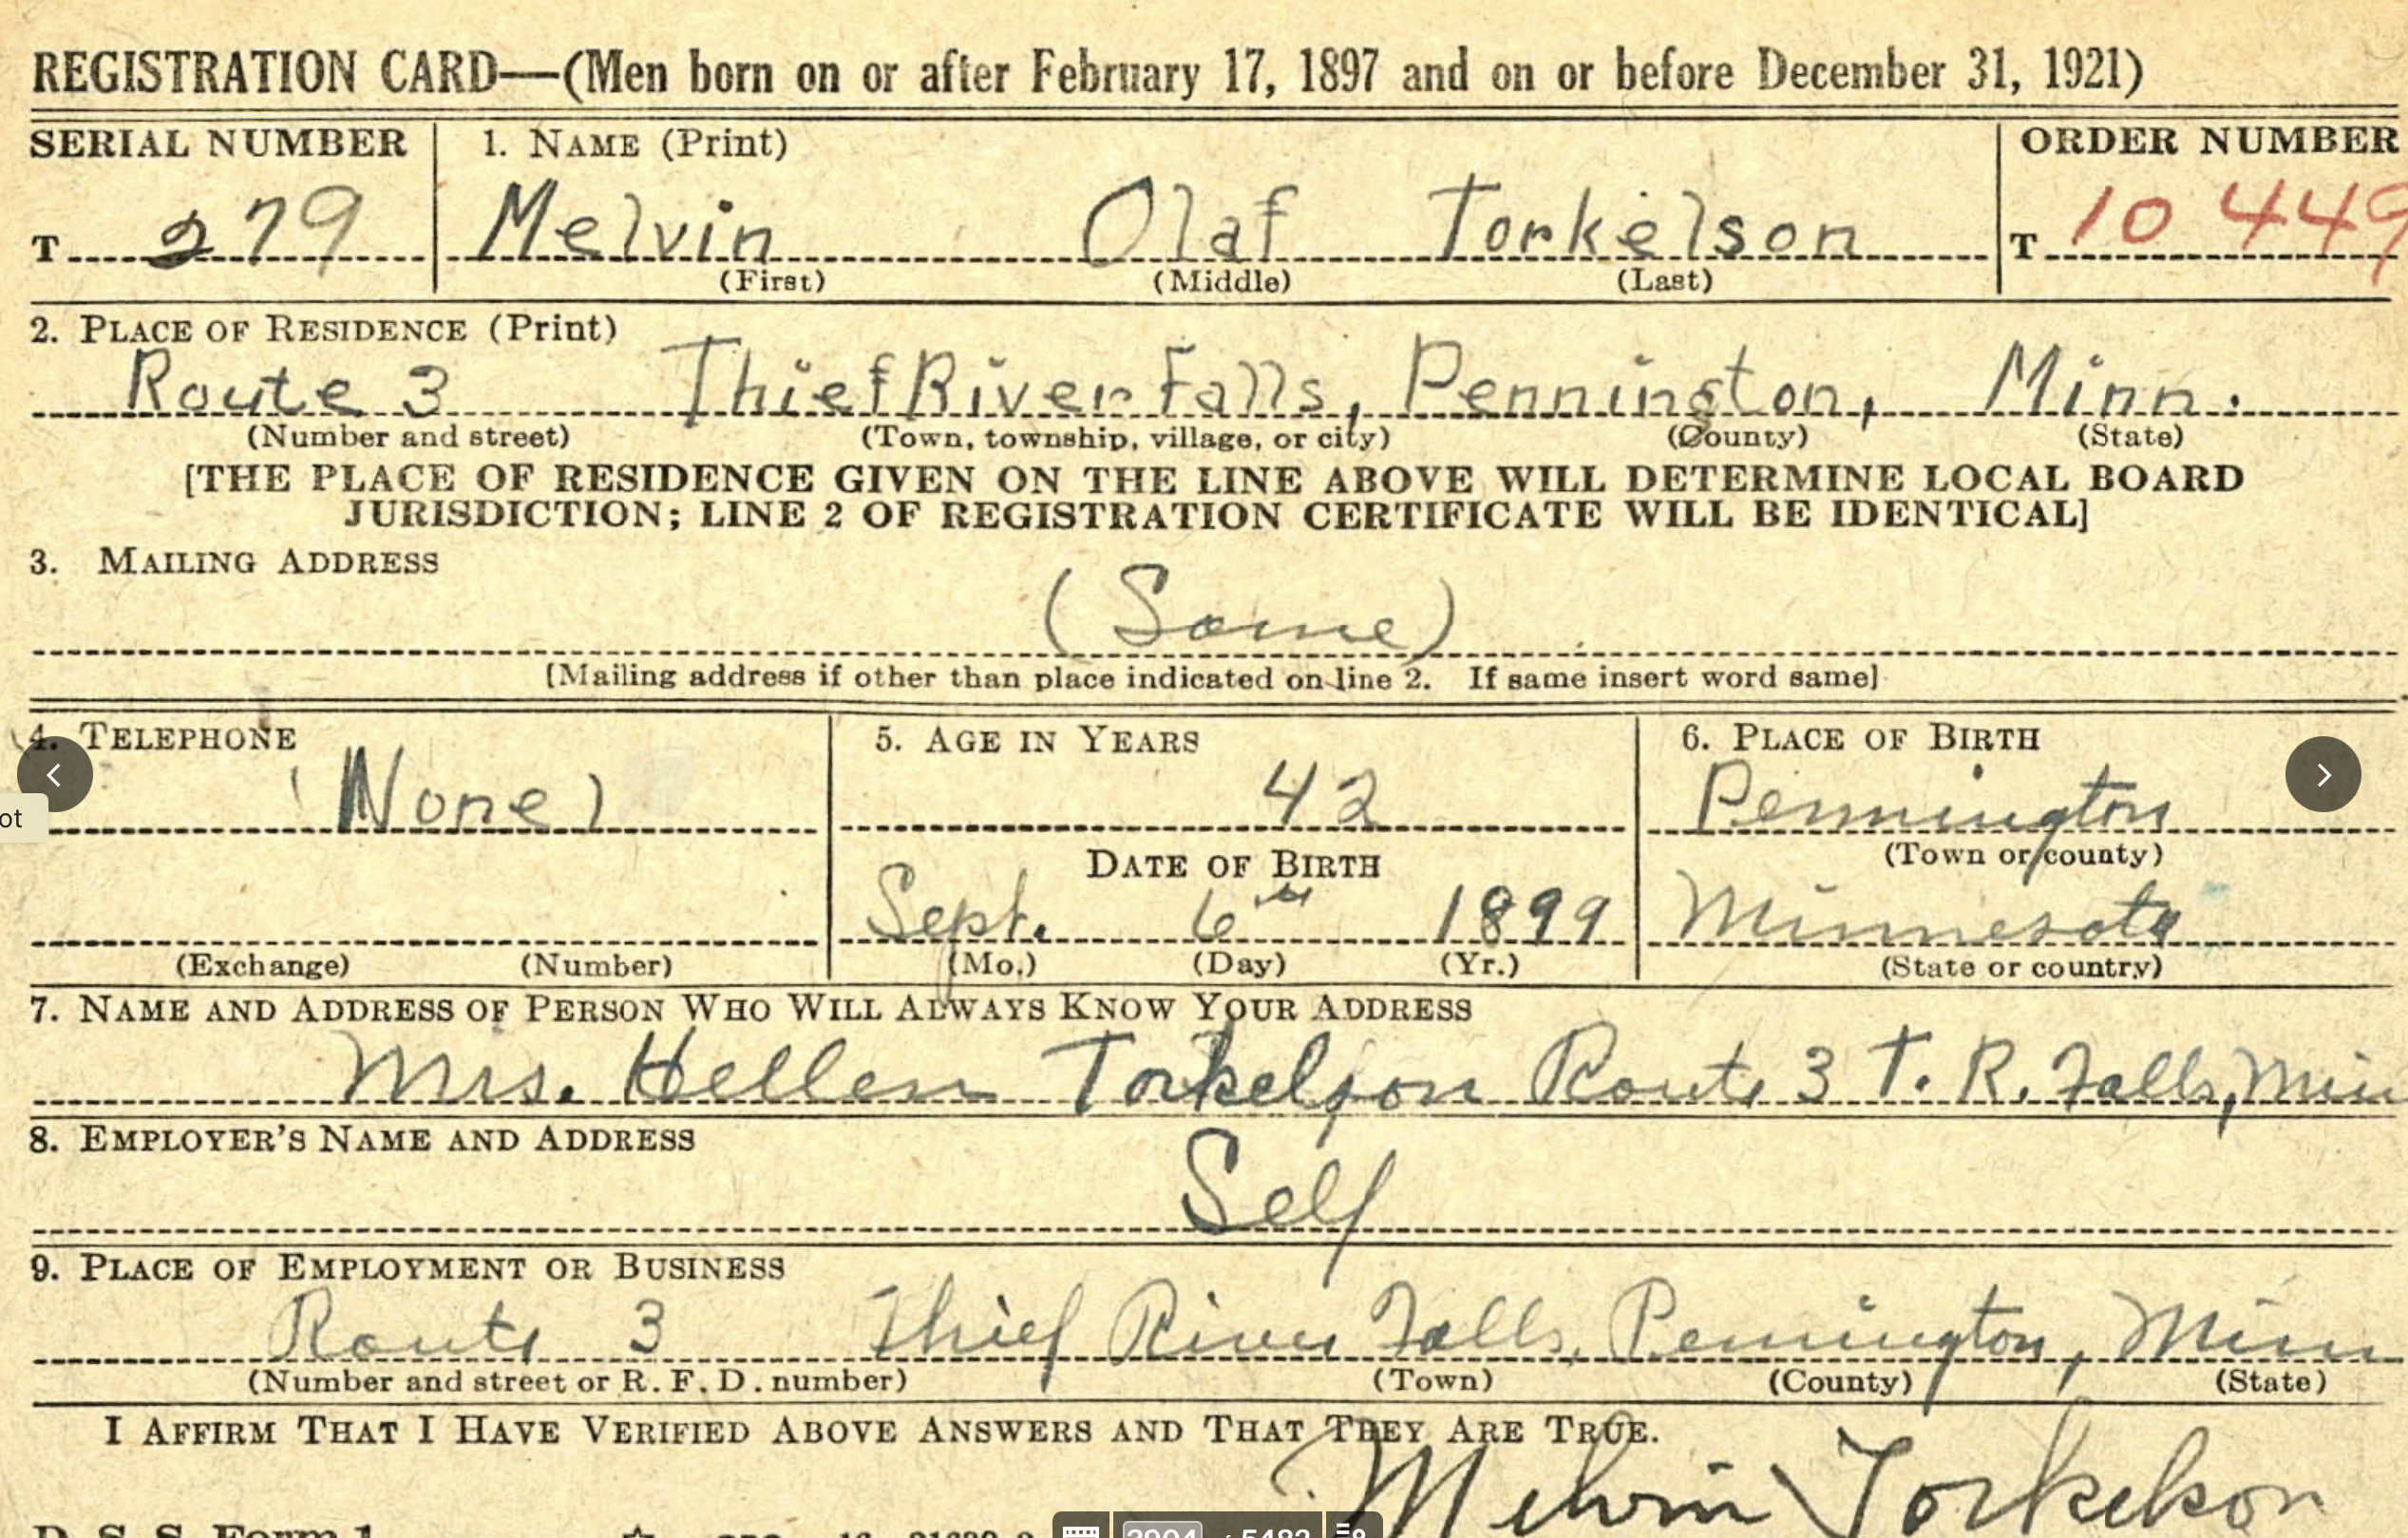 REGISTRATION CARD—(Men born on or after February 17, 1897 and on or before December 31, 1921)
SERIAL NUMBER 1. NAME (Print) ORDER NUMBER
T 279 Melvin Olaf Torkelson T 10 449
(First) (Middle) (Last)
2. PLACE OF RESIDENCE (Print)
Route 3 Thief River Falls, Pennington, Minn.
(Number and street) (Town, township, village, or city) (County) (State)
[THE PLACE OF RESIDENCE GIVEN ON THE LINE ABOVE WILL DETERMINE LOCAL BOARD
JURISDICTION; LINE 2 OF REGISTRATION CERTIFICATE WILL BE IDENTICAL]
3. MAILING ADDRESS
(Same)
[Mailing address if other than place indicated on line 2. If same insert word same]
4. TELEPHONE 5. AGE IN YEARS 6. PLACE OF BIRTH
(None) 42 Pennington
ot
DATE OF BIRTH (Town or county)
Sept. 6th 1899 Minnesota
(Exchange) (Number) (Mo.) (Day) (Yr.) (State or country)
7. NAME AND ADDRESS OF PERSON WHO WILL ALWAYS KNOW YOUR ADDRESS
Mrs. Hellen Torkelson Route 3 T. R. Falls, Min
8. EMPLOYER'S NAME AND ADDRESS
Self
9. PLACE OF EMPLOYMENT OR BUSINESS
Route 3 Thief River Falls, Pennington, Minn
(Number and street or R. F. D. number) (Town) (County) (State)
I AFFIRM THAT I HAVE VERIFIED ABOVE ANSWERS AND THAT THEY ARE TRUE.
Melvin Torkelson
D. S. S. Form 1